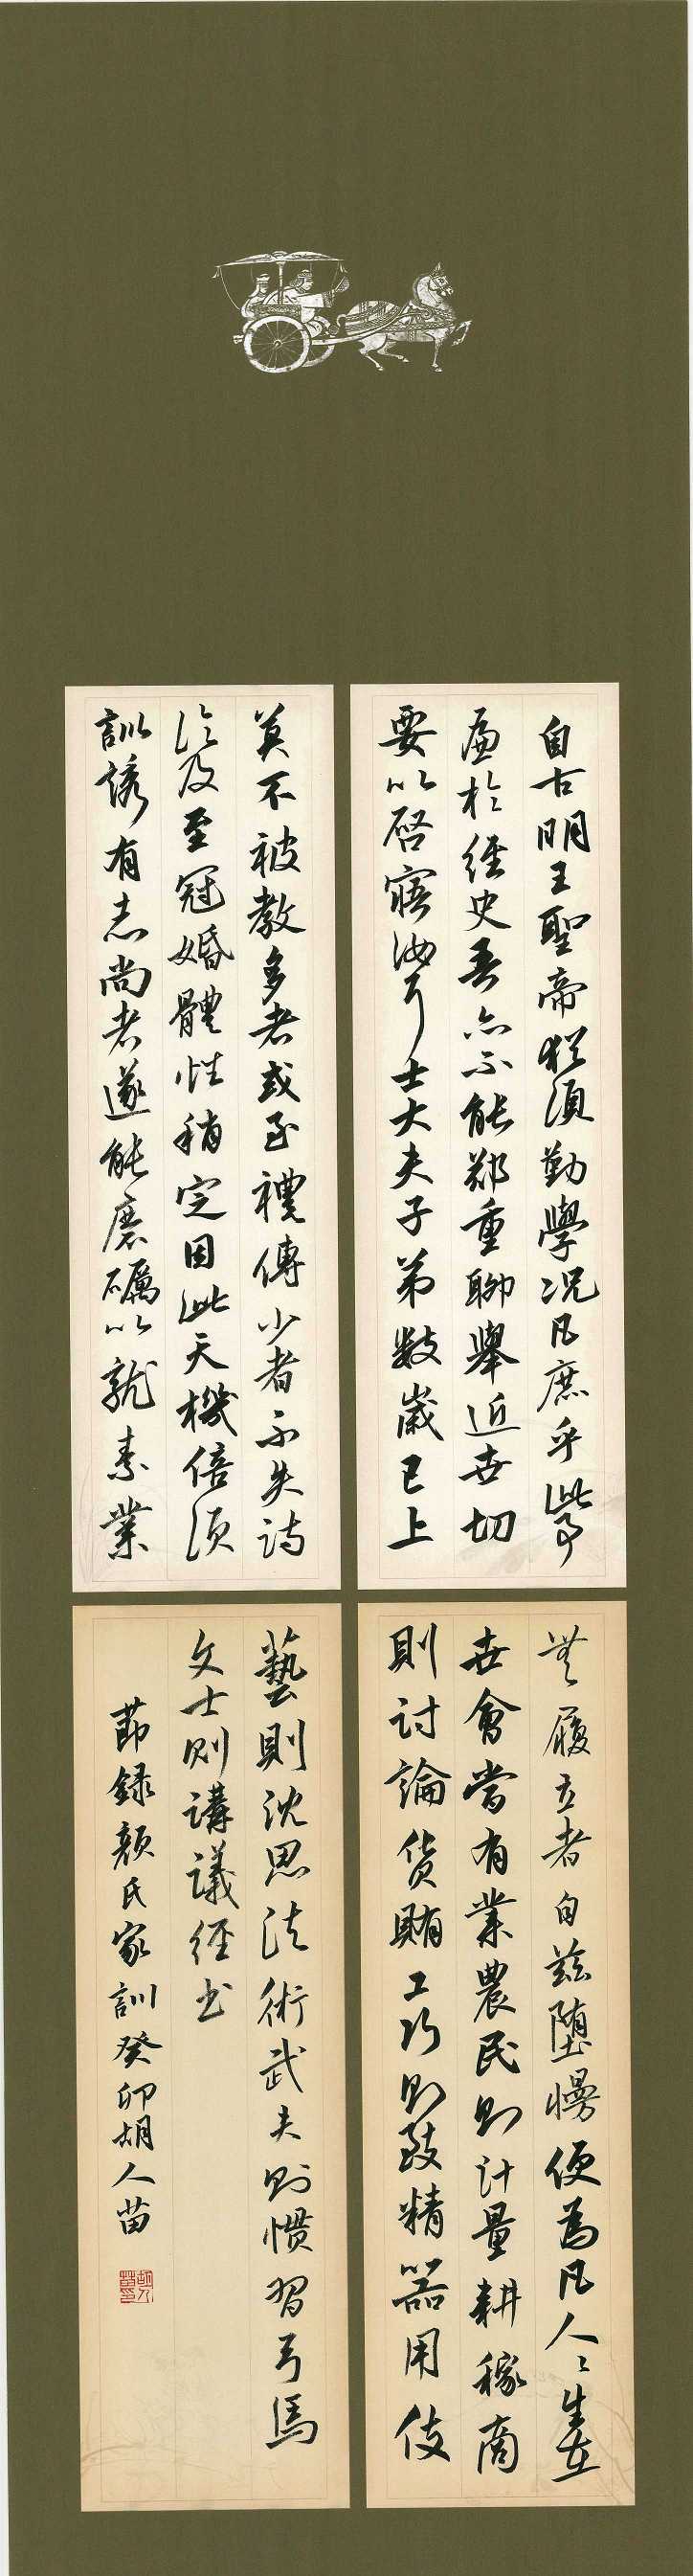 自古明王聖帝猶須勤學況凡庶乎此事
遍於經史吾亦不能鄭重聊舉近世切
要以啓寤汝耳士大夫子弟數歲已上
莫不被教多者或至禮傳少者不失詩
論及至冠婚體性稍定因此天機倍須
訓誘有志尚者遂能磨礪以就素業
無履立者自兹墮慢便為凡人人生在
世會當有業農民則計量耕稼商
則討論貨賄工巧則致精器用伎
藝則沈思法術武夫則慣習弓馬
文士則講議經書
節錄顏氏家訓癸卯胡人苗